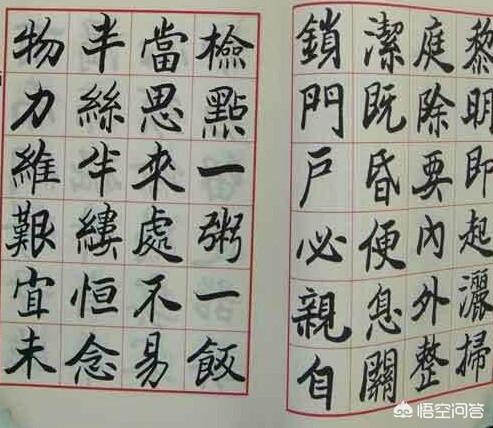 黎明即起灑掃
庭除要內外整
潔既昏便息關
鎖門戶必親自
檢點一粥一飯
當思來處不易
半絲半縷恒念
物力維艱宜未
悟空问答